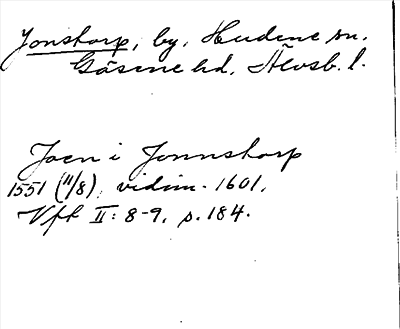 Jonstorp, by, Hudene sn.
Gäsene hd, Älvsb. l.
Joen i Jonnstorp
1551 (11/8), vidim. 1601,
Vft II: 8-9, s. 184.